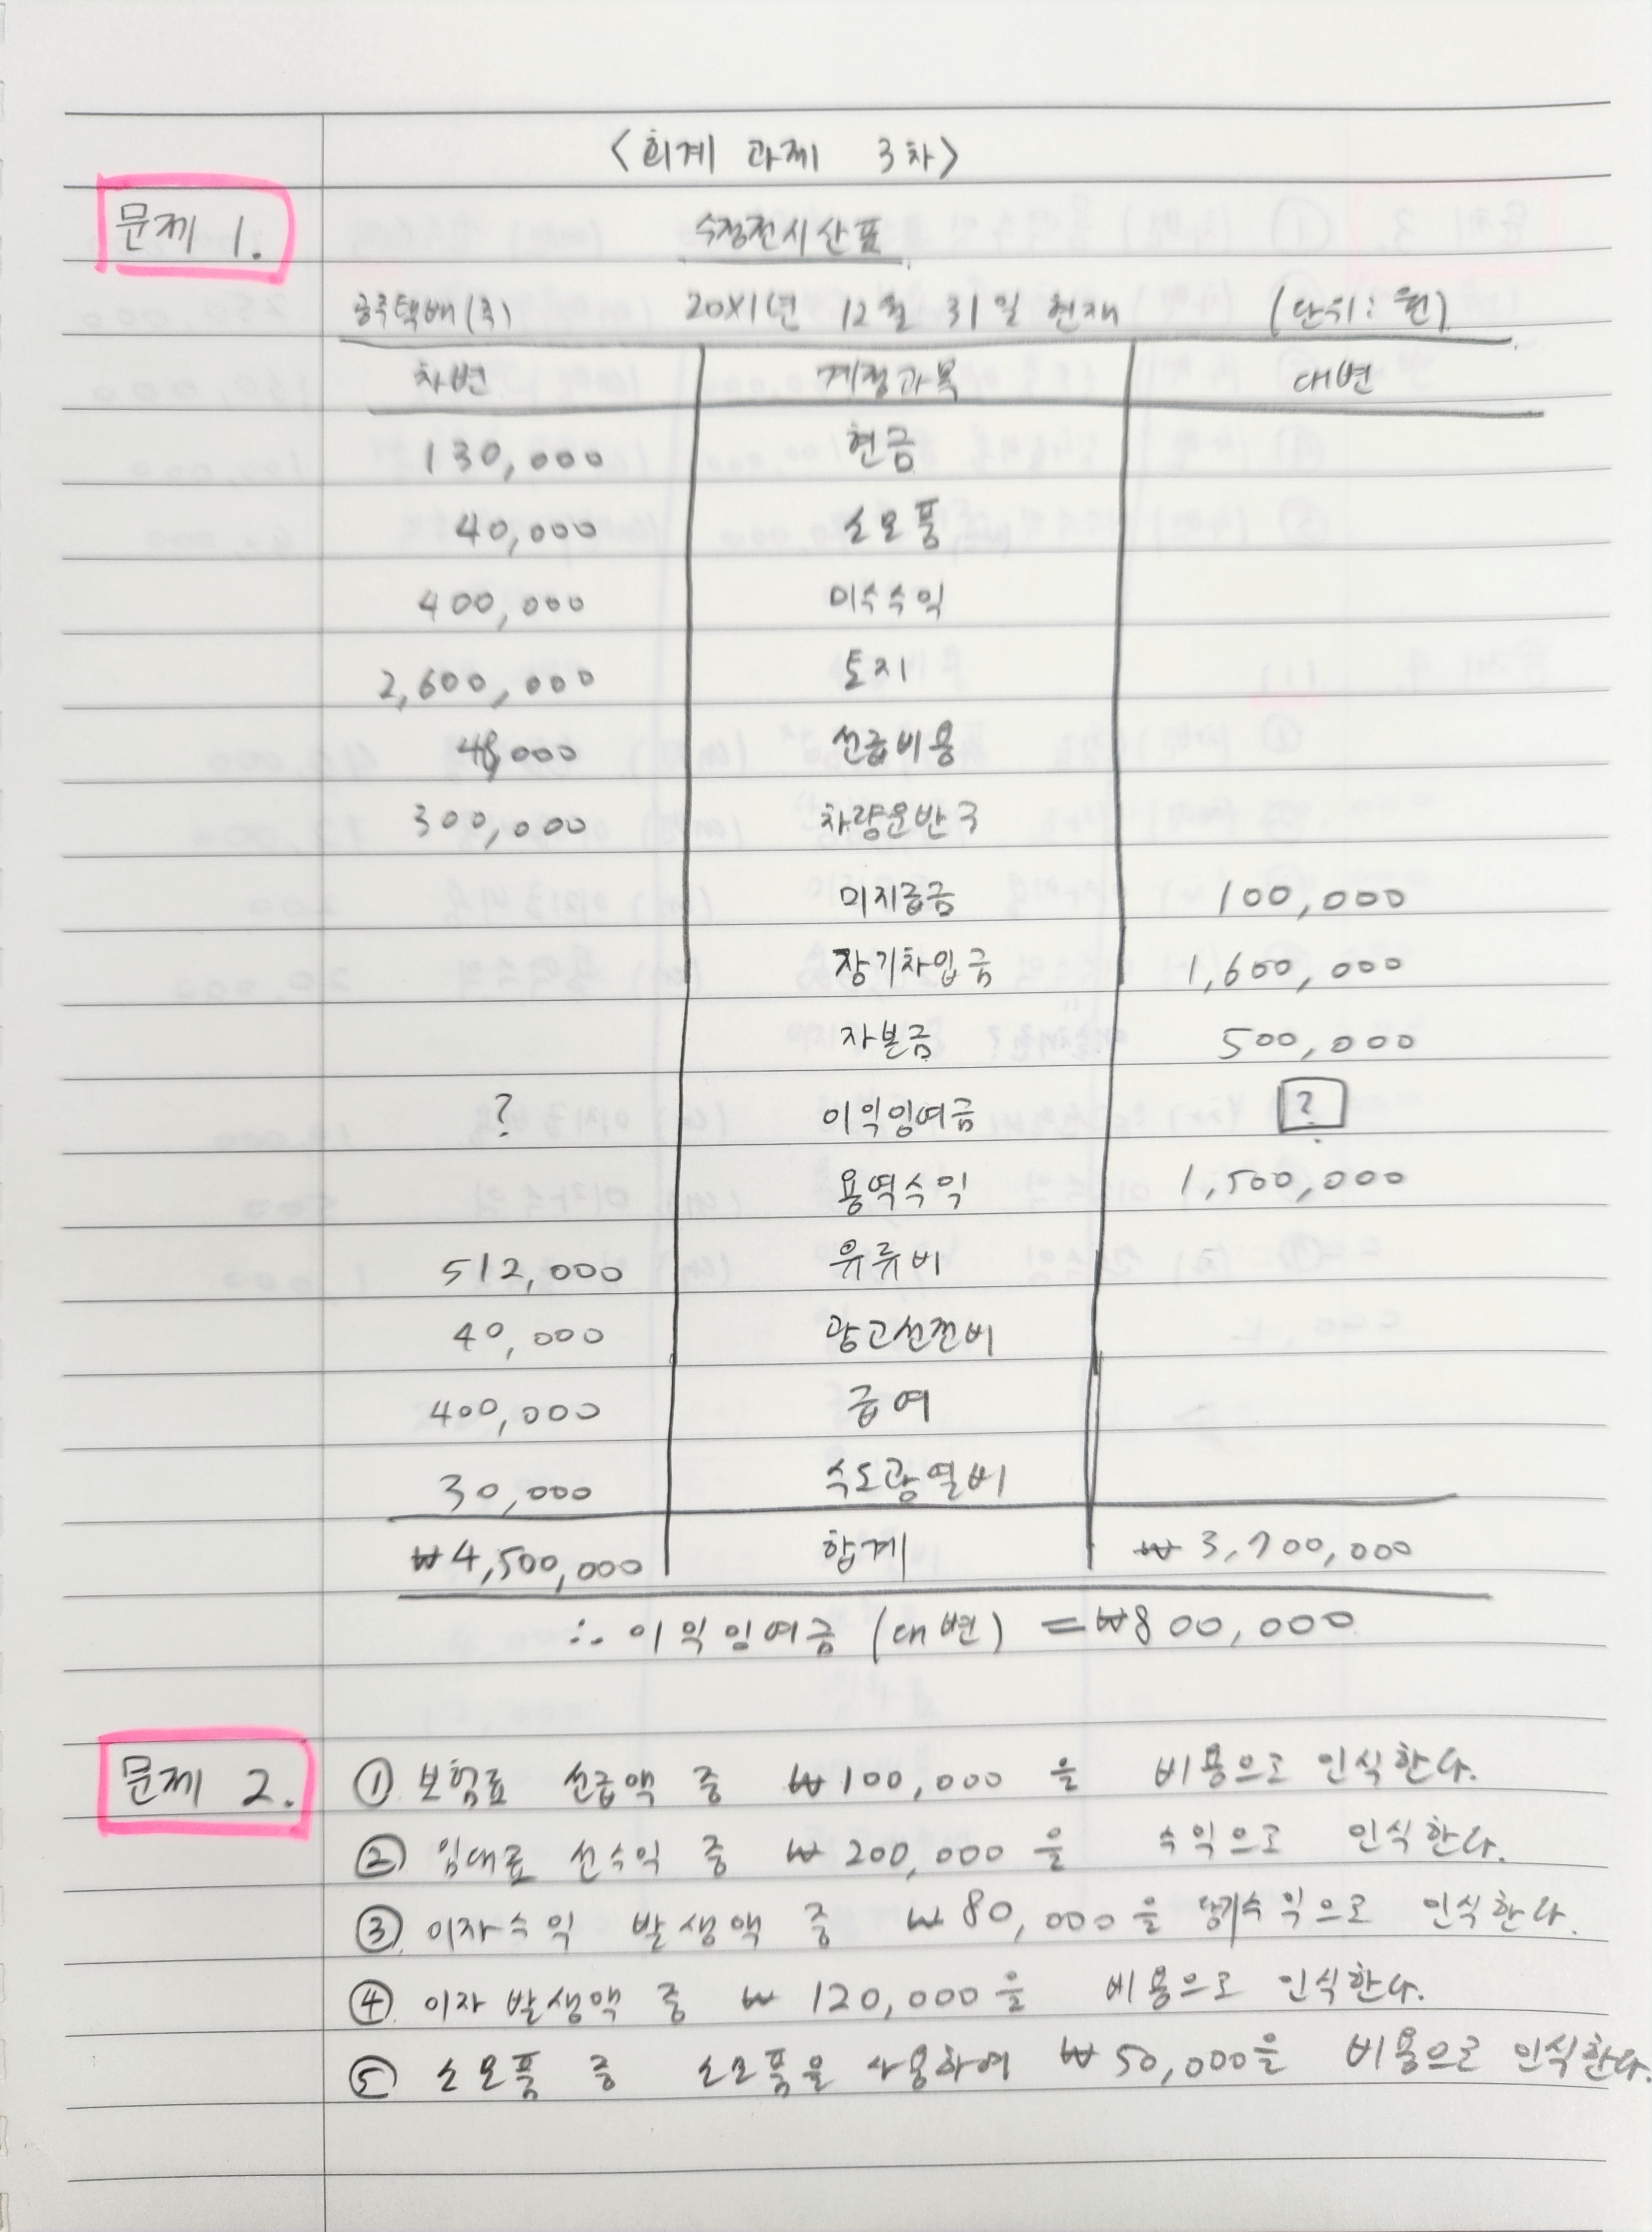 <회계 과제 3차>
문제 1. 수정전시산표
20X1년 12월 31일 현재 (단위: 원)
차변 계정과목 대변
130,000 현금
40,000 소모품
400,000 미수수익
2,600,000 토지
48,000 선급비용
300,000 차량운반구
미지급금 100,000
장기차입금 1,600,000
자본금 500,000
? 이익잉여금 ?
용역수익 1,500,000
512,000 유류비
40,000 광고선전비
400,000 급여
30,000 수도광열비
₩4,500,000 합계 ₩3,700,000
∴ 이익잉여금 (대변) = ₩800,000
문제 2. ① 보험료 선급액 중 ₩100,000 을 비용으로 인식한다.
② 임대료 선수익 중 ₩200,000 을 수익으로 인식한다.
③ 이자수익 발생액 중 ₩80,000을 당기수익으로 인식한다.
④ 이자 발생액 중 ₩120,000을 비용으로 인식한다.
⑤ 소모품 중 소모품을 사용하여 ₩50,000을 비용으로 인식한다.